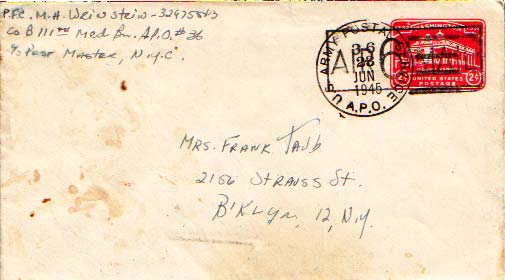 P.F.C. M.H. Weinstein - 32975843
Co B 111th Med Bn. A.P.O. #36
% Post Master, N.Y.C.
U.S. ARMY POSTAL SERVICE
3-6
28
JUN
1945
A.P.O.
WASHINGTON
UNITED STATES
POSTAGE
2¢
Mrs. Frank Taub
2156 Strauss St.
B'klyn, 12, N.Y.